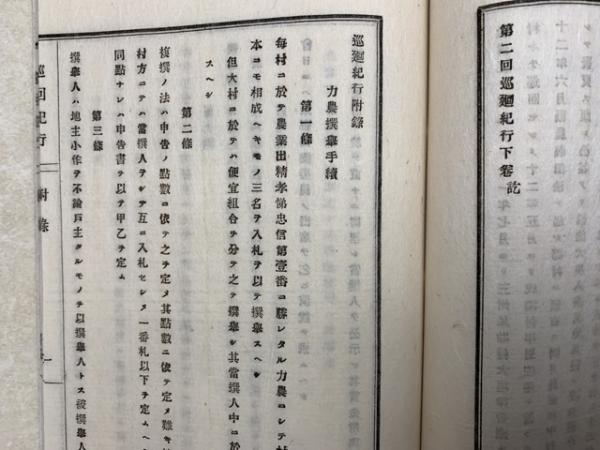 第二回巡廻紀行下卷 訖
巡廻紀行附錄
力農撰擧手續
第一條
每村ニ於テ農業出精孝悌忠信第壹番ニ勝レタル力農ニシテ村
本ニモ相成ヘキモノ三名ヲ入札ヲ以テ撰擧スヘシ
但大村ニ於テハ便宜組合ヲ分テ之ヲ撰擧シ其當撰人中ニ於
スヘシ
第二條
複撰ノ法ハ申告ノ點數ニ依テ之ヲ定メ其點數ニ依テ定メ難キ
村方ニテハ當撰人ヲシテ互ニ入札セシメ一番札以下ヲ定ム
同點ナレハ申告書ヲ以テ甲乙ヲ定ム
第三條
撰擧人ハ地主小作ヲ不論戶主タルモノヲ以撰擧人トス被撰擧人
巡回紀行 附錄 一